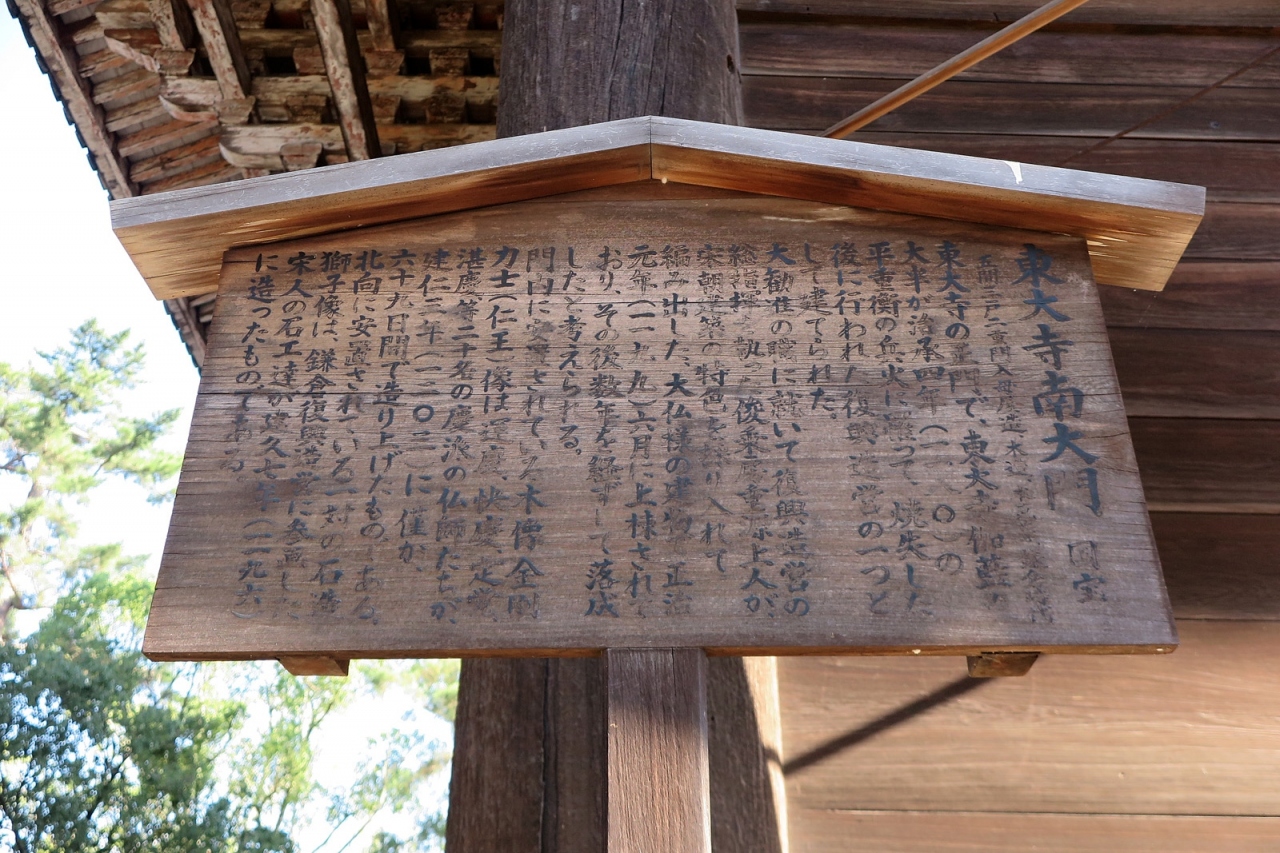 東大寺南大門 国宝
五間三戸二重門 入母屋造 本瓦
東大寺の正門で、東大寺伽藍の
大半が治承四年（一一八〇）の
平重衡の兵火に罹って焼失した
後に行われた復興造営の一つと
して建てられた。
大勧進の職に就いて復興造営の
総指揮を執った俊乗房重源上人が、
宋朝建築の特色を採り入れて
編み出した、大仏様の建物で正治
元年（一一九九）六月に上棟されて
おり、その後数年を経ずして落成
したと考えられる。
門内に安置されている木像金剛
力士（仁王）像は運慶、快慶、定覚、
湛慶等二十名の慶派の仏師たちが、
建仁三年（一二〇三）に僅か
六十九日間で造り上げたもの である。
北向に安置されている一対の石造
獅子像は、鎌倉復興造営に参画した
宋人の石工達が建久七年（一一九六）
に造ったものである。